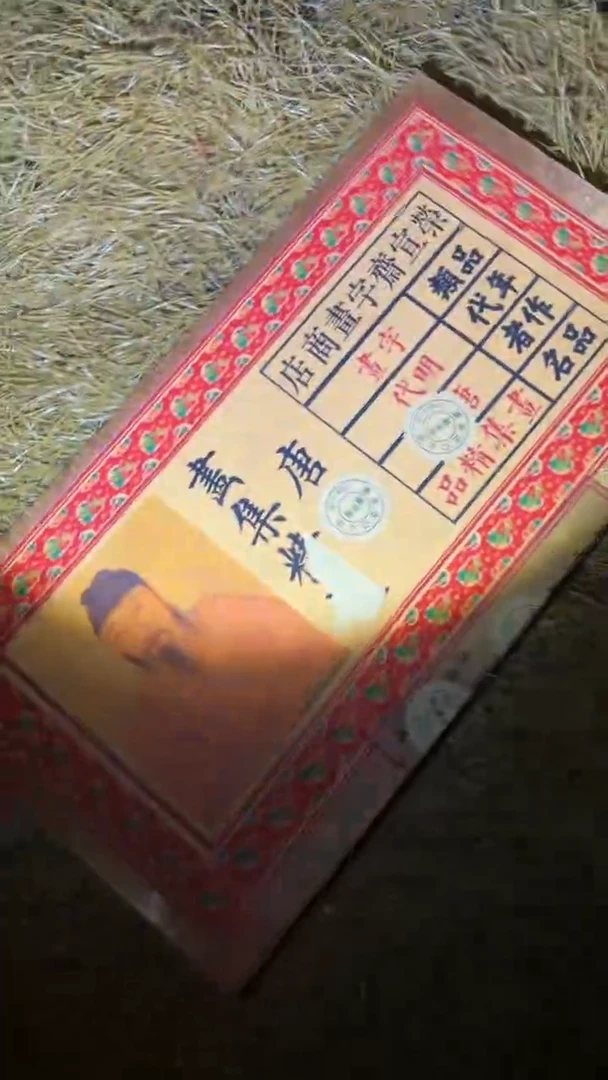 榮宣齋字畫商店
品類 字畫
年代 明代
作者
品名 畫集精品
唐
畫集